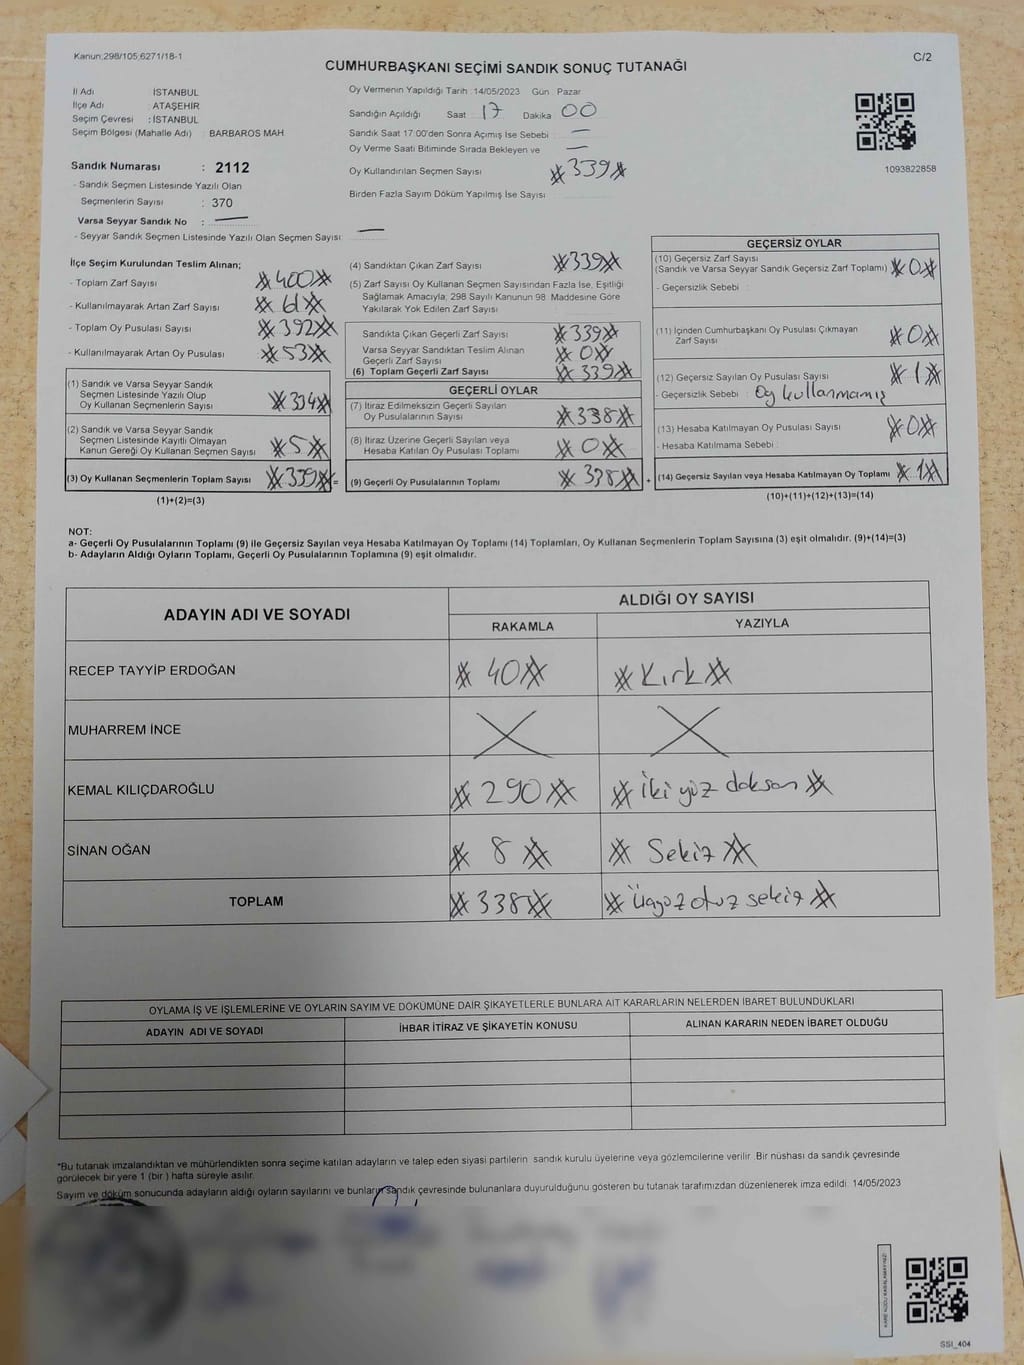 Kanun;298/105;6271/18-1
C/2
CUMHURBAŞKANI SEÇİMİ SANDIK SONUÇ TUTANAĞI
İl Adı İSTANBUL
İlçe Adı : ATAŞEHİR
Seçim Çevresi : İSTANBUL
Seçim Bölgesi (Mahalle Adı) : BARBAROS MAH
Sandık Numarası : 2112
- Sandık Seçmen Listesinde Yazılı Olan
Seçmenlerin Sayısı : 370
Varsa Seyyar Sandık No : —
- Seyyar Sandık Seçmen Listesinde Yazılı Olan Seçmen Sayısı: —
Oy Vermenin Yapıldığı Tarih :14/05/2023 Gün : Pazar
Sandığın Açıldığı Saat : 17 Dakika 00
Sandık Saat 17:00'den Sonra Açımış İse Sebebi : —
Oy Verme Saati Bitiminde Sırada Bekleyen ve —
Oy Kullandırılan Seçmen Sayısı 339
Birden Fazla Sayım Döküm Yapılmış İse Sayısı
1093822858
İlçe Seçim Kurulundan Teslim Alınan;
- Toplam Zarf Sayısı 400
- Kullanılmayarak Artan Zarf Sayısı 61
- Toplam Oy Pusulası Sayısı 392
- Kullanılmayarak Artan Oy Pusulası 53
(1) Sandık ve Varsa Seyyar Sandık
Seçmen Listesinde Yazılı Olup
Oy Kullanan Seçmenlerin Sayısı 334
(2) Sandık ve Varsa Seyyar Sandık
Seçmen Listesinde Kayıtlı Olmayan
Kanun Gereği Oy Kullanan Seçmen Sayısı 5
(3) Oy Kullanan Seçmenlerin Toplam Sayısı 339 =
(1)+(2)=(3)
(4) Sandıktan Çıkan Zarf Sayısı 339
(5) Zarf Sayısı Oy Kullanan Seçmen Sayısından Fazla İse, Eşitliği
Sağlamak Amacıyla; 298 Sayılı Kanunun 98. Maddesine Göre
Yakılarak Yok Edilen Zarf Sayısı
Sandıkta Çıkan Geçerli Zarf Sayısı 339
Varsa Seyyar Sandıktan Teslim Alınan
Geçerli Zarf Sayısı 0
(6) Toplam Geçerli Zarf Sayısı 339
GEÇERLİ OYLAR
(7) İtiraz Edilmeksizin Geçerli Sayılan
Oy Pusulalarının Sayısı 338
(8) İtiraz Üzerine Geçerli Sayılan veya
Hesaba Katılan Oy Pusulası Toplamı 0
(9) Geçerli Oy Pusulalarının Toplamı 338 +
GEÇERSİZ OYLAR
(10) Geçersiz Zarf Sayısı
(Sandık ve Varsa Seyyar Sandık Geçersiz Zarf Toplamı) 0
- Geçersizlik Sebebi :
(11) İçinden Cumhurbaşkanı Oy Pusulası Çıkmayan
Zarf Sayısı 0
(12) Geçersiz Sayılan Oy Pusulası Sayısı 1
- Geçersizlik Sebebi : Oy kullanmamış
(13) Hesaba Katılmayan Oy Pusulası Sayısı 0
- Hesaba Katılmama Sebebi :
(14) Geçersiz Sayılan veya Hesaba Katılmayan Oy Toplamı 1
(10)+(11)+(12)+(13)=(14)
NOT:
a- Geçerli Oy Pusulalarının Toplamı (9) ile Geçersiz Sayılan veya Hesaba Katılmayan Oy Toplamı (14) Toplamları, Oy Kullanan Seçmenlerin Toplam Sayısına (3) eşit olmalıdır. (9)+(14)=(3)
b- Adayların Aldığı Oyların Toplamı, Geçerli Oy Pusulalarının Toplamına (9) eşit olmalıdır.
ADAYIN ADI VE SOYADI ALDIĞI OY SAYISI
RAKAMLA YAZIYLA
RECEP TAYYİP ERDOĞAN 40 Kırk
MUHARREM İNCE
KEMAL KILIÇDAROĞLU 290 İki yüz doksan
SİNAN OĞAN 8 Sekiz
TOPLAM 338 Üçyüz otuz sekiz
OYLAMA İŞ VE İŞLEMLERİNE VE OYLARIN SAYIM VE DÖKÜMÜNE DAİR ŞİKAYETLERLE BUNLARA AİT KARARLARIN NELERDEN İBARET BULUNDUKLARI
ADAYIN ADI VE SOYADI İHBAR İTİRAZ VE ŞİKAYETİN KONUSU ALINAN KARARIN NEDEN İBARET OLDUĞU
*Bu tutanak imzalandıktan ve mühürlendikten sonra seçime katılan adayların ve talep eden siyasi partilerin sandık kurulu üyelerine veya gözlemcilerine verilir .Bir nüshası da sandık çevresinde
görülecek bir yere 1 (bir ) hafta süreyle asılır.
Sayım ve döküm sonucunda adayların aldığı oyların sayılarını ve bunların sandık çevresinde bulunanlara duyurulduğunu gösteren bu tutanak tarafımızdan düzenlenerek imza edildi. 14/05/2023
SSI_404